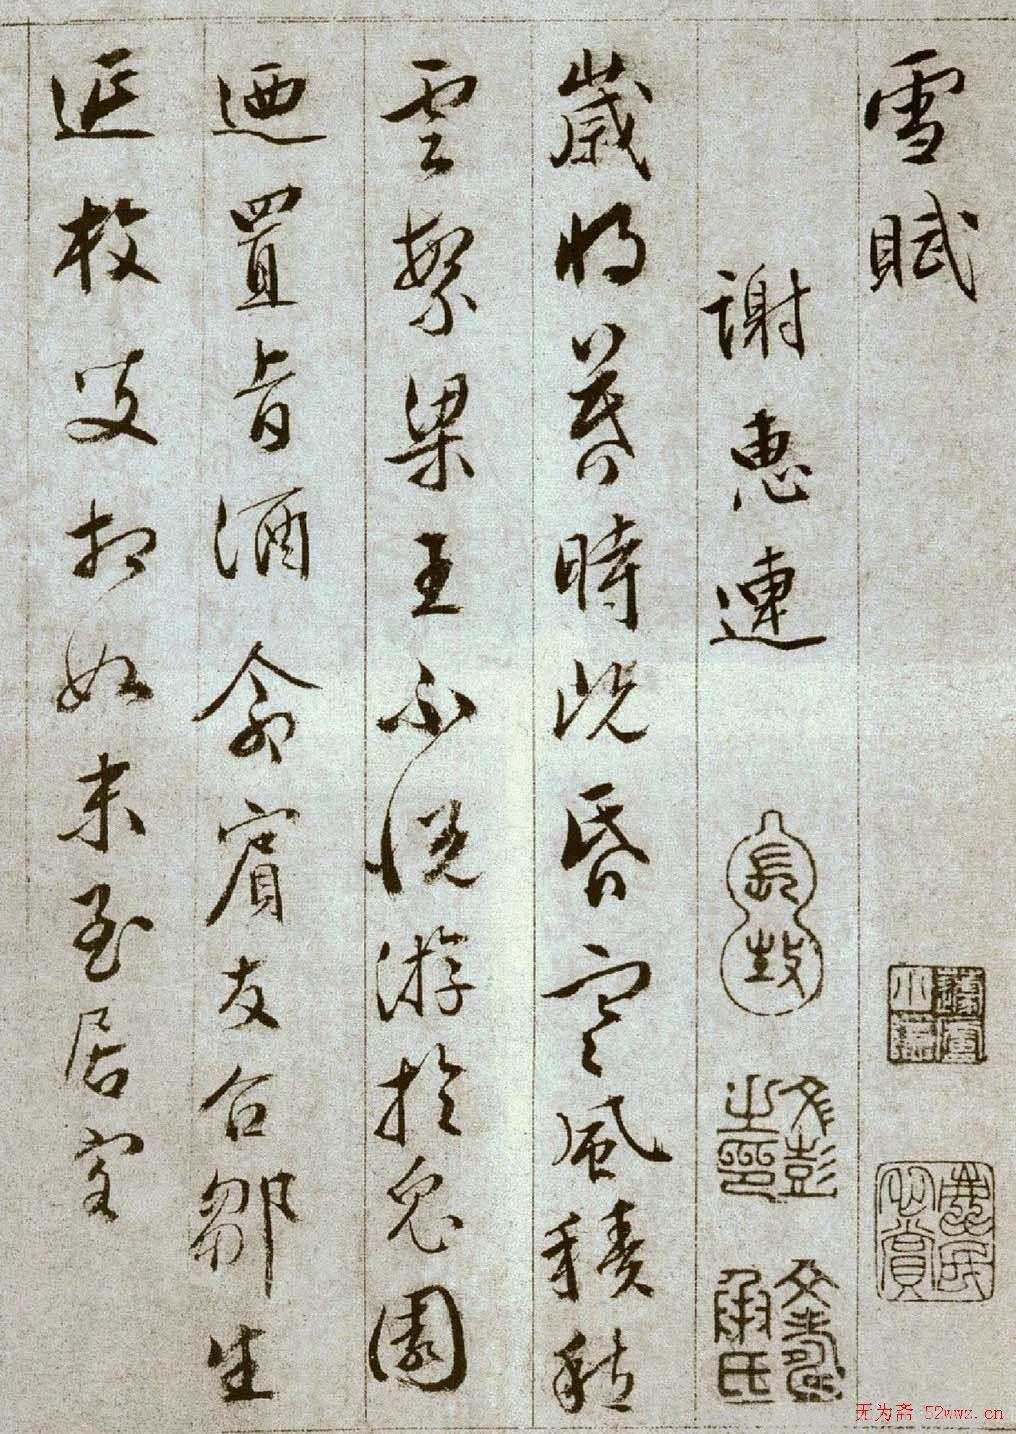 雪賦
謝惠連
歲將暮時既昏寒風積愁
雲繁梁王不悅游於兔園
迺置旨酒命賓友召鄒生
延枚叟相如末至居客
文彭之印
文壽承氏
无为斋 52wwz.cn